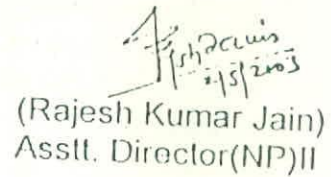 2/5/2003
(Rajesh Kumar Jain)
Asstt. Director(NP)II